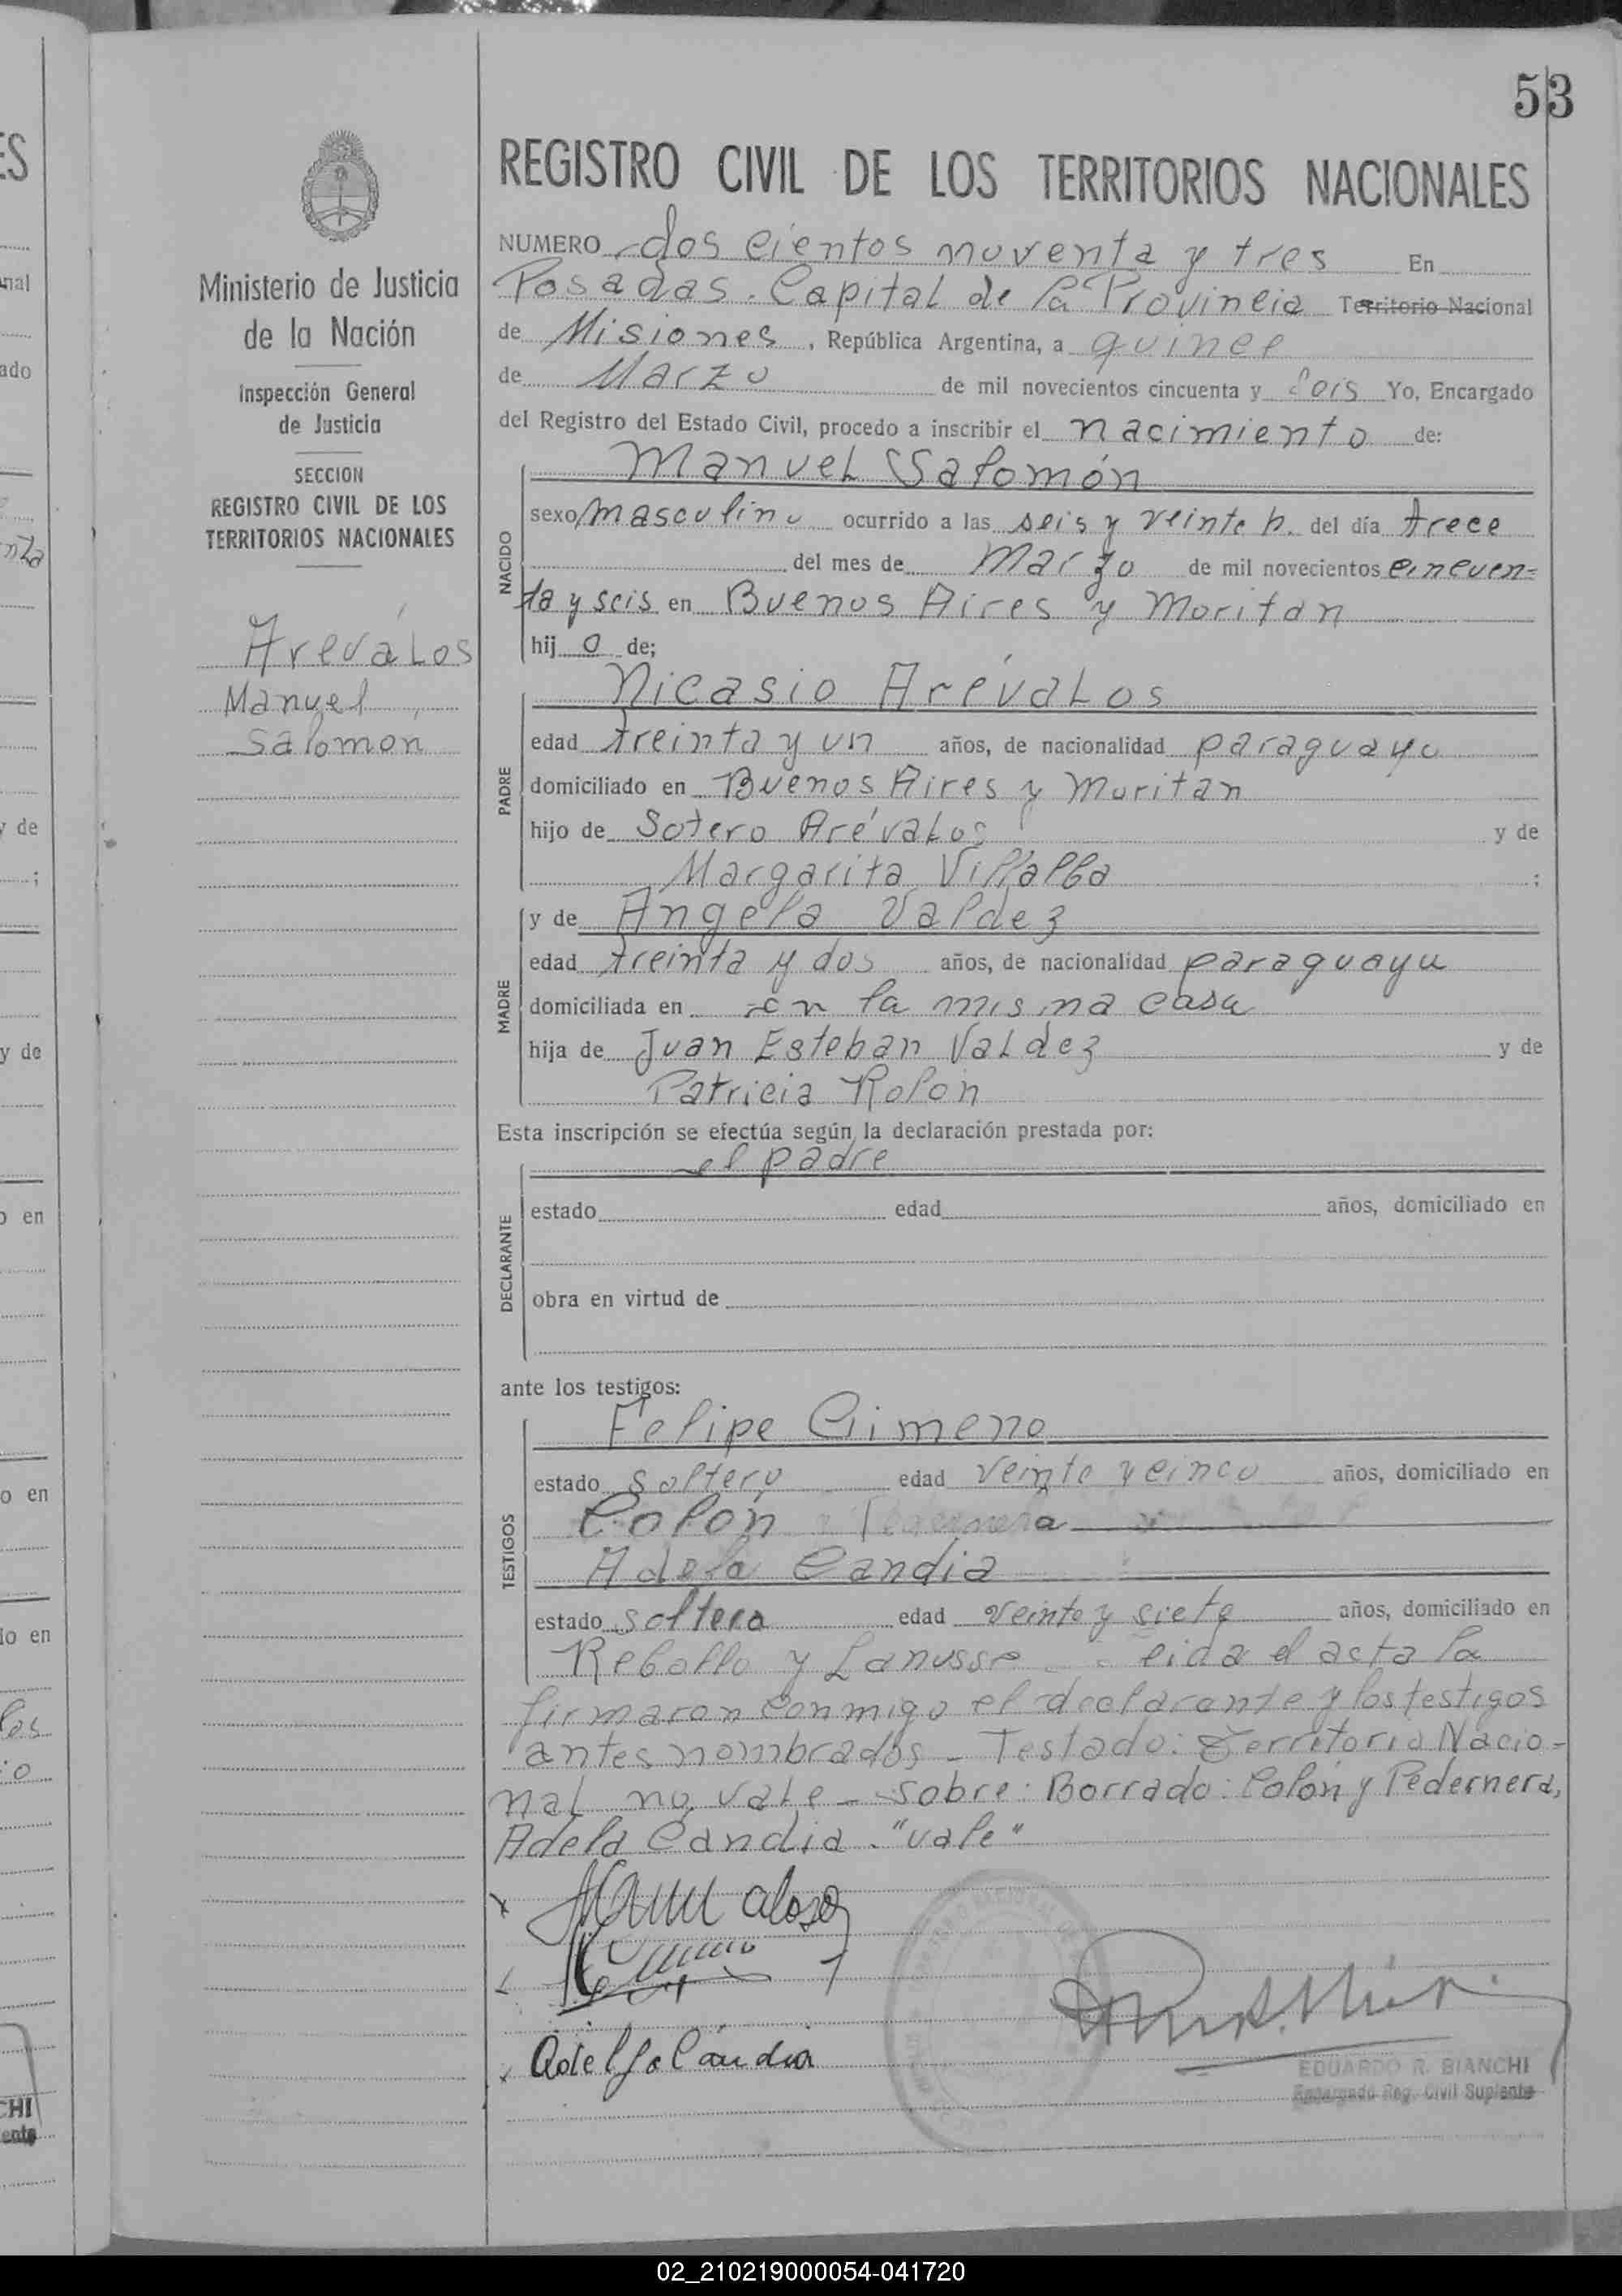 53
REGISTRO CIVIL DE LOS TERRITORIOS NACIONALES
Ministerio de Justicia
de la Nación
Inspección General
de Justicia
SECCION
REGISTRO CIVIL DE LOS
TERRITORIOS NACIONALES
Areválos
Manuel
Salomon
NUMERO dos cientos noventa y tres En
Posadas. Capital de la Provincia Territorio Nacional
de Misiones, República Argentina, a quince
de Marzo de mil novecientos cincuenta y seis Yo, Encargado
del Registro del Estado Civil, procedo a inscribir el nacimiento de:
NACIDO
Manuel Salomón
sexo masculino ocurrido a las seis y veinte h. del día trece
del mes de marzo de mil novecientos cincuen=
ta y seis en Buenos Aires y Moritan
hij o de;
PADRE
Nicasio Arévalos
edad treinta y un años, de nacionalidad paraguayo
domiciliado en Buenos Aires y Moritan
hijo de Sotero Arévalos y de
Margarita Villalba ;
MADRE
y de Angela Valdez
edad treinta y dos años, de nacionalidad paraguaya
domiciliada en en la misma casa
hija de Juan Esteban Valdez y de
Patricia Rolon
Esta inscripción se efectúa según la declaración prestada por:
DECLARANTE
el padre
estado edad años, domiciliado en
obra en virtud de
ante los testigos:
TESTIGOS
Felipe Gimeno
estado soltero edad veinte y cinco años, domiciliado en
Colón Pedernera
Adela Candia
estado soltera edad veinte y siete años, domiciliado en
Rebollo y Lanusse leida el acta la
firmaron conmigo el declarante y los testigos
antes nombrados - Testado: Territorio Nacio-
nal no vale - sobre: Borrado: Colón y Pedernera,
Adela Candia. "vale"
Candia
EDUARDO R. BIANCHI
Encargado Reg. Civil Suplente
02_210219000054-041720